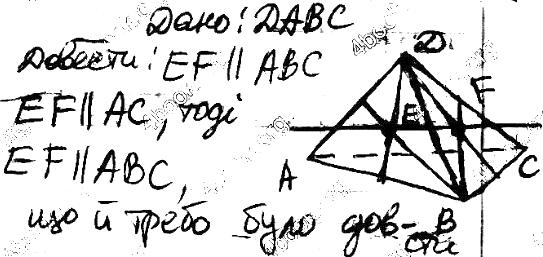 Дано: DABC
Довести: EF || ABC
EF || AC, тоді
EF || ABC,
що й требо було дов-
сти
D
E
F
A
C
B